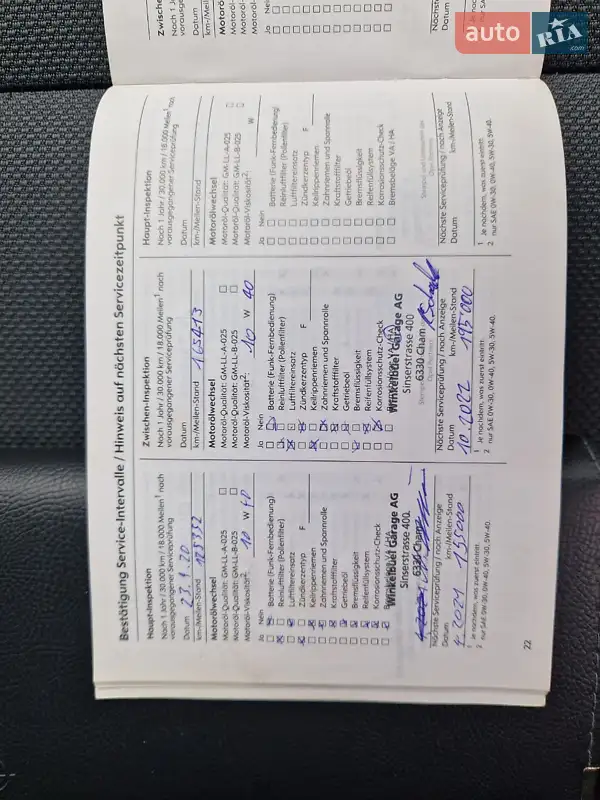 auto RIA .com
Bestätigung Service-Intervalle / Hinweis auf nächsten Servicezeitpunkt
Haupt-Inspektion
Nach 1 Jahr / 30 000 km / 18 000 Meilen¹ nach
vorausgegangener Serviceprüfung
Datum 23.9.20
km-/Meilen-Stand
Motorölwechsel
Motoröl-Qualität: GM-LL-A-025 □
Motoröl-Qualität: GM-LL-B-025 □
Motoröl-Viskosität²: 10 W 40
Ja Nein
Batterie (Funk-Fernbedienung)
Reinluftfilter (Pollenfilter)
Luftfiltereinsatz
Zündkerzentyp F
Keilrippenriemen
Zahnriemen und Spannrolle
Kraftstofffilter
Getriebeöl
Bremsflüssigkeit
Reifenfüllsystem
Korrosionsschutz-Check
Winkelbüel Garage AG
Sinserstrasse 400
6330 Cham
Nächste Serviceprüfung / nach Anzeige
Datum km-/Meilen-Stand
1 Je nachdem, was zuerst eintritt.
2 nur SAE 0W-30, 0W-40, 5W-30, 5W-40.
Zwischen-Inspektion
Nach 1 Jahr / 30 000 km / 18 000 Meilen¹ nach
vorausgegangener Serviceprüfung
Datum
km-/Meilen-Stand
Motorölwechsel
Motoröl-Qualität: GM-LL-A-025 □
Motoröl-Qualität: GM-LL-B-025 □
Motoröl-Viskosität²: 10 W 40
Ja Nein
Batterie (Funk-Fernbedienung)
Reinluftfilter (Pollenfilter)
Luftfiltereinsatz
Zündkerzentyp F
Keilrippenriemen
Zahnriemen und Spannrolle
Kraftstofffilter
Getriebeöl
Bremsflüssigkeit
Reifenfüllsystem
Korrosionsschutz-Check
Winkelbüel Garage AG
Sinserstrasse 400
6330 Cham
Nächste Serviceprüfung / nach Anzeige
Datum km-/Meilen-Stand
10.2022 195000
1 Je nachdem, was zuerst eintritt.
2 nur SAE 0W-30, 0W-40, 5W-30, 5W-40.
Haupt-Inspektion
Nach 1 Jahr / 30 000 km / 18 000 Meilen¹ nach
vorausgegangener Serviceprüfung
Datum
km-/Meilen-Stand
Motorölwechsel
Motoröl-Qualität: GM-LL-A-025 □
Motoröl-Qualität: GM-LL-B-025 □
Motoröl-Viskosität²: W
Ja Nein
Batterie (Funk-Fernbedienung)
Reinluftfilter (Pollenfilter)
Luftfiltereinsatz
Zündkerzentyp F
Keilrippenriemen
Zahnriemen und Spannrolle
Kraftstofffilter
Getriebeöl
Bremsflüssigkeit
Reifenfüllsystem
Korrosionsschutz-Check
Bremsbeläge VA / HA
Nächste Serviceprüfung / nach Anzeige
Datum km-/Meilen-Stand
1 Je nachdem, was zuerst eintritt.
2 nur SAE 0W-30, 0W-40, 5W-30, 5W-40.
22